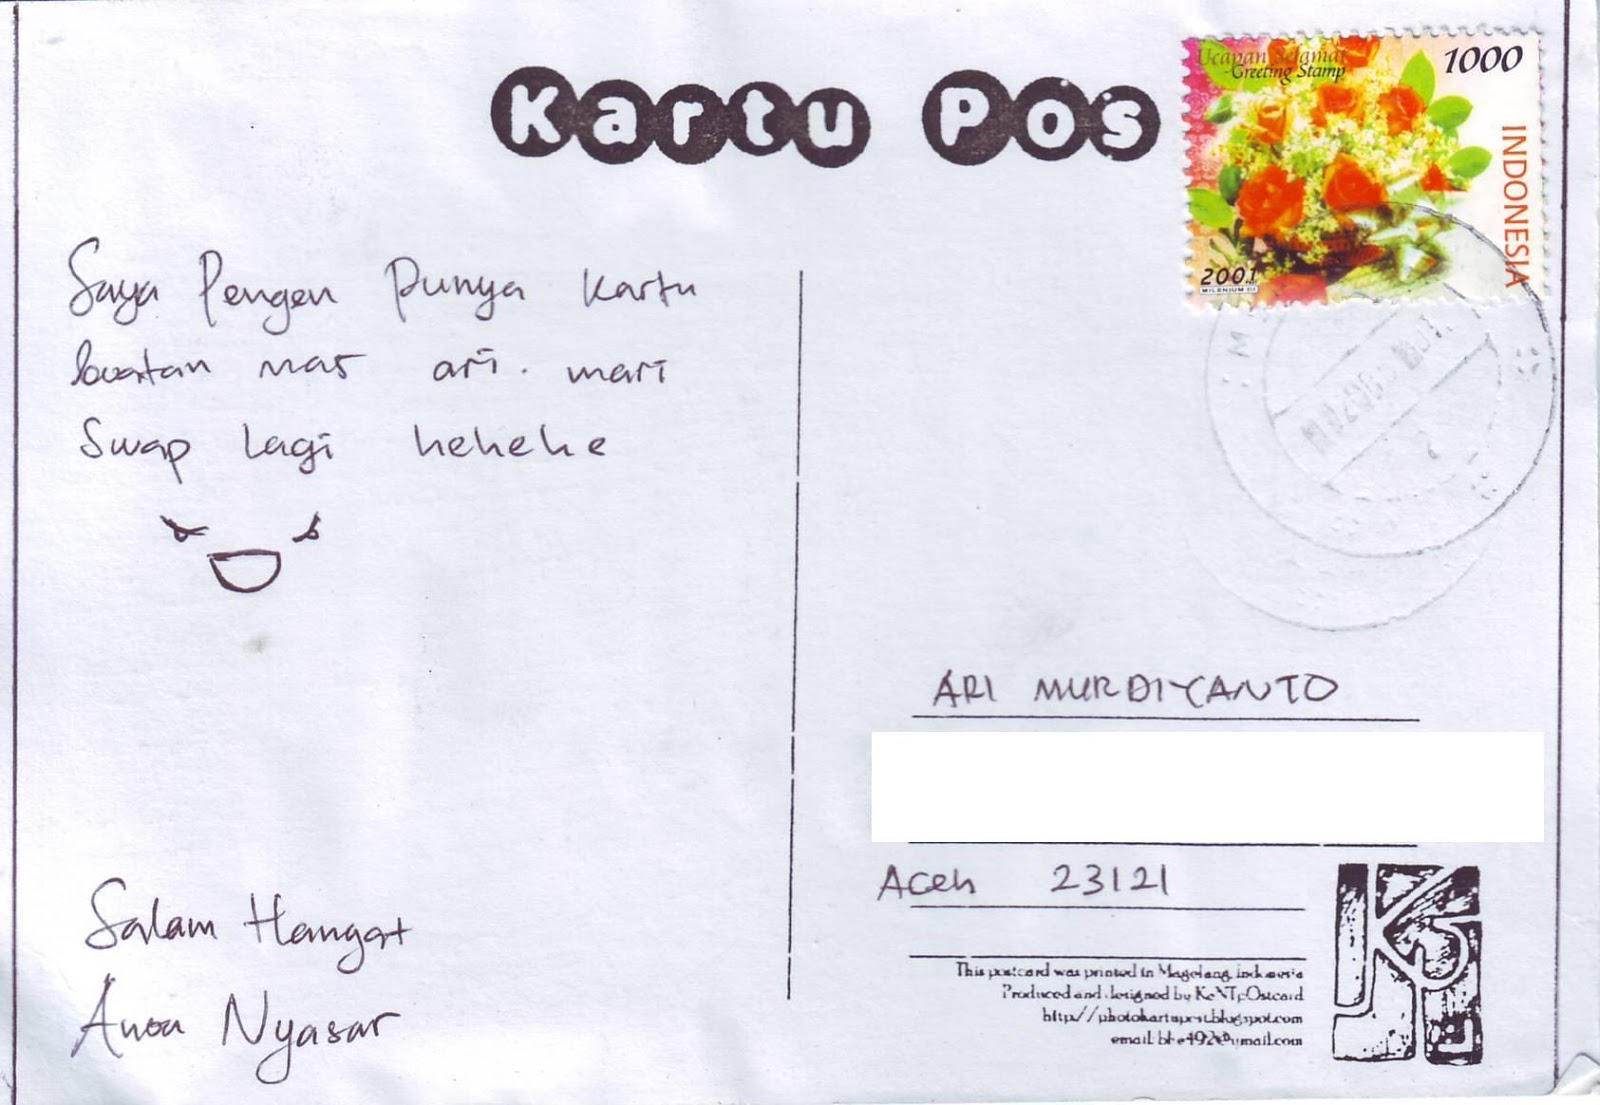 Kartu Pos
Ucapan Selamat
-Greeting Stamp
1000
INDONESIA
2001
MILENIUM III
Saya Pengen Punya Kartu
buatan mas ari. mari
Swap lagi hehehe
Salam Hangat
Nyasar
ARI MURDIYANTO
Aceh 23121
This postcard was printed in Magelang, indonesia
Produced and designed by KeNTpOstcard